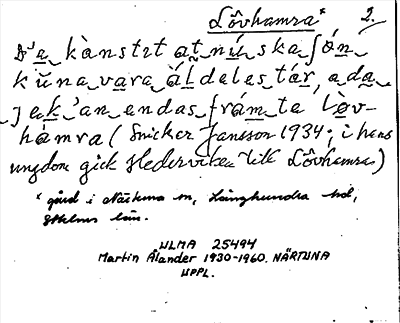 Lôvhamra* 2.
D'e kànstɪt at nú ska ʃón
kŭna vara áldeles tár, ada
jek'an endas fràmte lòv-
hàmra (Snicker Jansson 1934; i hans
ungdom gick Hederviken till Lôvhamra)
* gård i Närtuna sn, Långhundra hd,
Sthlms län.
ULMA 25494
Martin Ålander 1930-1960. NÄRTUNA
UPPL.